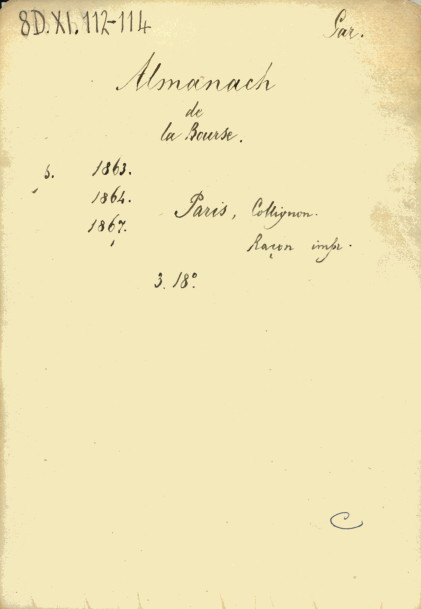 8D.XI.112-114
Par.
Almanach
de
la Bourse.
s. 1863.
1864.
1867.
Paris, Collignon.
Raçon impr.
3. 18°
C